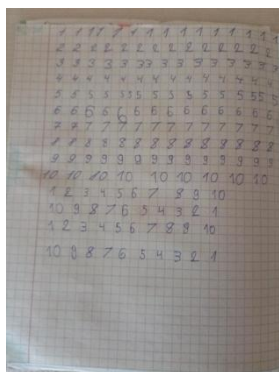 1 1 1 1 1 1 1 1 1 1 1 1 1
2 2 2 2 2 2 2 2 2 2 2 2 2
3 3 3 3 3 3 3 3 3 3 3 3 3
4 4 4 4 4 4 4 4 4 4 4 4
5 5 5 5 5 5 5 5 5 5 5 5 5
6 6 6 6 6 6 6 6 6 6 6 6
7 7 7 7 7 7 7 7 7 7 7 7 7
8 8 8 8 8 8 8 8 8 8 8 8 8
9 9 9 9 9 9 9 9 9 9 9 9 9
10 10 10 10 10 10 10 10 10
1 2 3 4 5 6 7 8 9 10
10 9 8 7 6 5 4 3 2 1
1 2 3 4 5 6 7 8 9 10
10 9 8 7 6 5 4 3 2 1